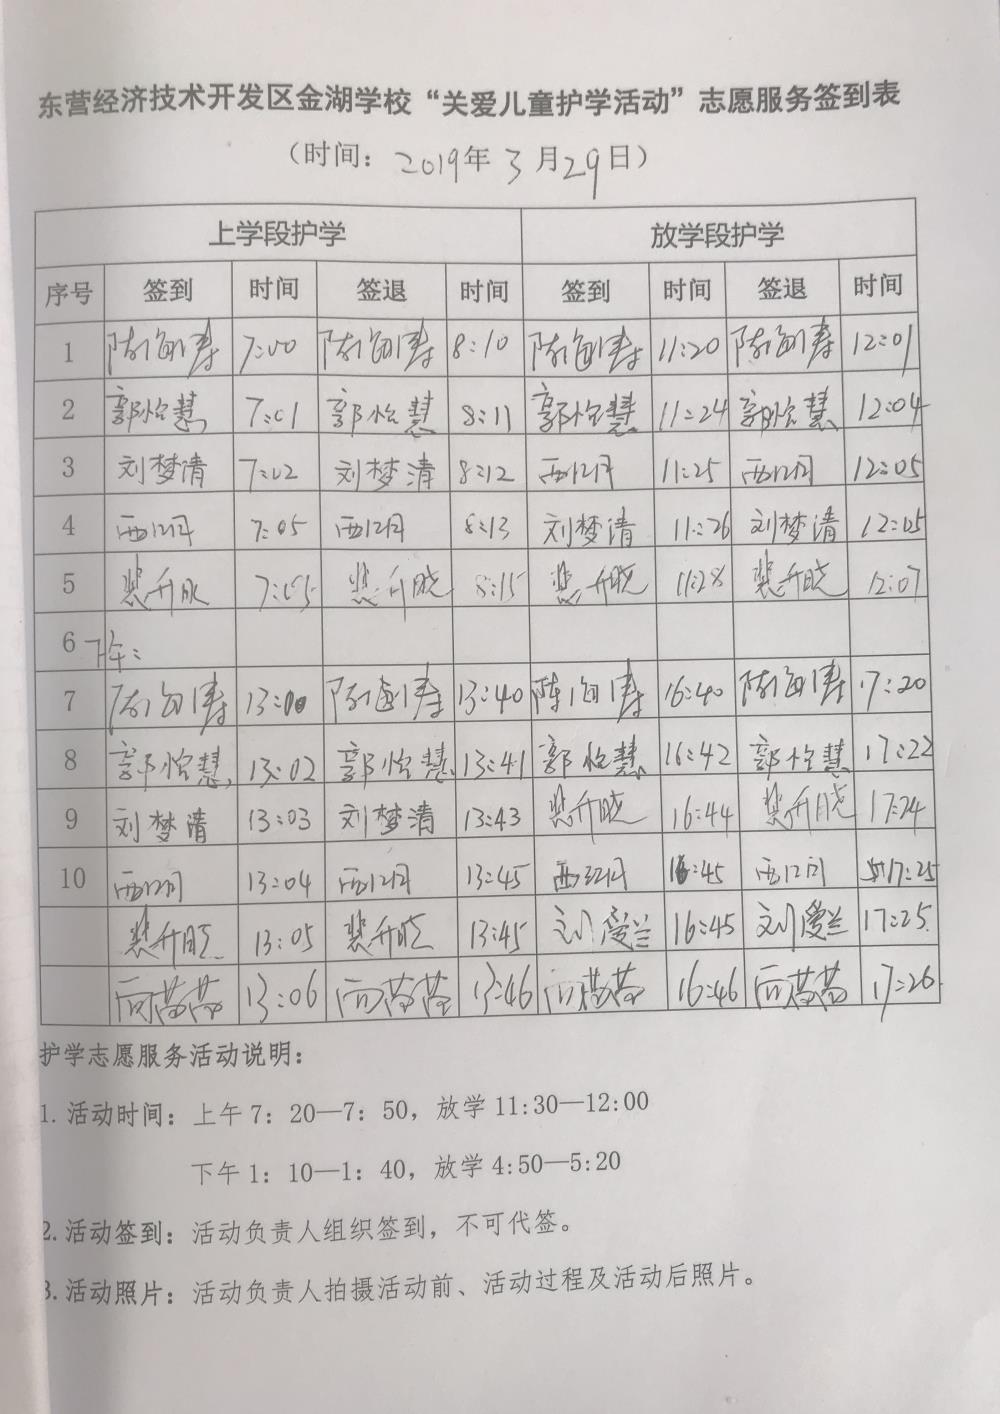 东营经济技术开发区金湖学校“关爱儿童护学活动”志愿服务签到表
（时间：2019年3月29日）
上学段护学 放学段护学
序号 签到 时间 签退 时间 签到 时间 签退 时间
1 7:00 8:10 11:20 12:01
2 郭怡慧 7:01 郭怡慧 8:11 郭怡慧 11:24 郭怡慧 12:04
3 刘梦清 7:02 刘梦清 8:12 11:25 12:05
4 7:05 8:13 刘梦清 11:26 刘梦清 12:05
5 7:05 裴升晓 8:15 裴升晓 11:28 裴升晓 12:07
6 下午：
7 13:00 13:40 16:40 17:20
8 郭怡慧 13:02 郭怡慧 13:41 郭怡慧 16:42 郭怡慧 17:22
9 刘梦清 13:03 刘梦清 13:43 裴升晓 16:44 裴升晓 17:24
10 13:04 13:45 16:45 17:25
裴升晓 13:05 裴升晓 13:45 刘爱兰 16:45 刘爱兰 17:25
13:06 13:46 16:46 17:26
护学志愿服务活动说明：
1. 活动时间：上午 7：20—7：50，放学 11:30—12:00
下午 1：10—1：40，放学 4:50—5:20
2. 活动签到：活动负责人组织签到，不可代签。
3. 活动照片：活动负责人拍摄活动前、活动过程及活动后照片。